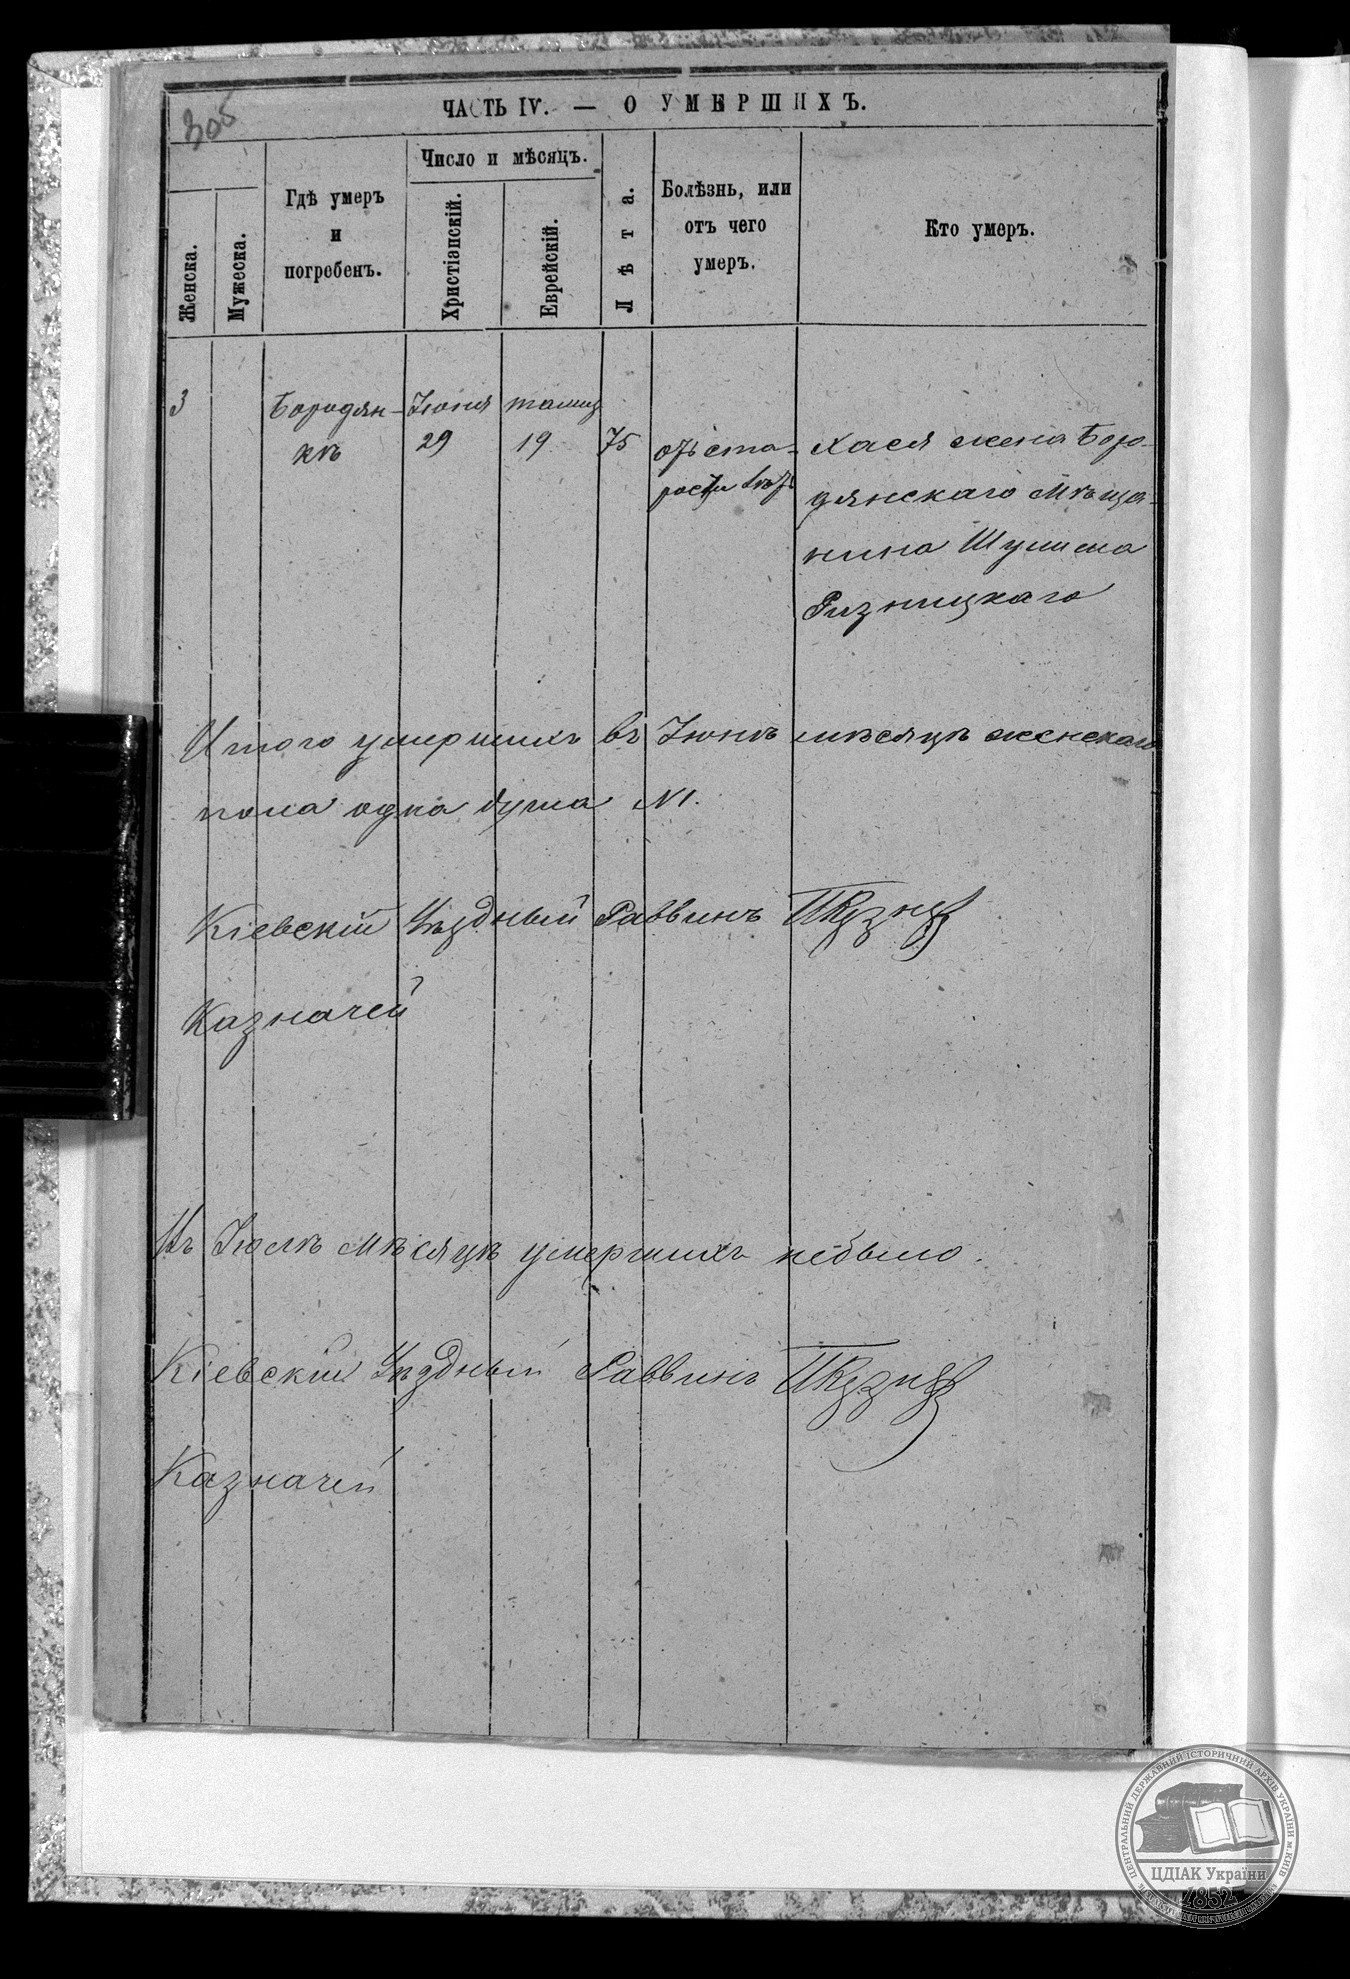 305
ЧАСТЬ IV. — О УМЕРШИХЪ.
Женска.
Мужеска.
Гдѣ умеръ
и
погребенъ.
Число и мѣсяцъ.
Христіанскій.
Еврейскій.
Лѣта.
Болѣзнь, или
отъ чего
умеръ.
Кто умеръ.
3
Бородян-
кѣ
Іюня
29
тамуз
19
75
отъ ста-
рости лѣтъ
Хася жена Боро-
дянскаго Мѣща-
нина Шулима
Ризницкаго
Итого умершихъ въ Іюнѣ мѣсяцѣ женскаго
пола одна душа №1.
Кіевскій Уѣздный Раввинъ
Казначей
Въ Іюлѣ мѣсяцѣ умершихъ небыло.
Кіевскій Уѣздный Раввинъ
Казначей
ЦЕНТРАЛЬНИЙ ДЕРЖАВНИЙ ІСТОРИЧНИЙ АРХІВ УКРАЇНИ м. КИЇВ
ЦДІАК України
1852